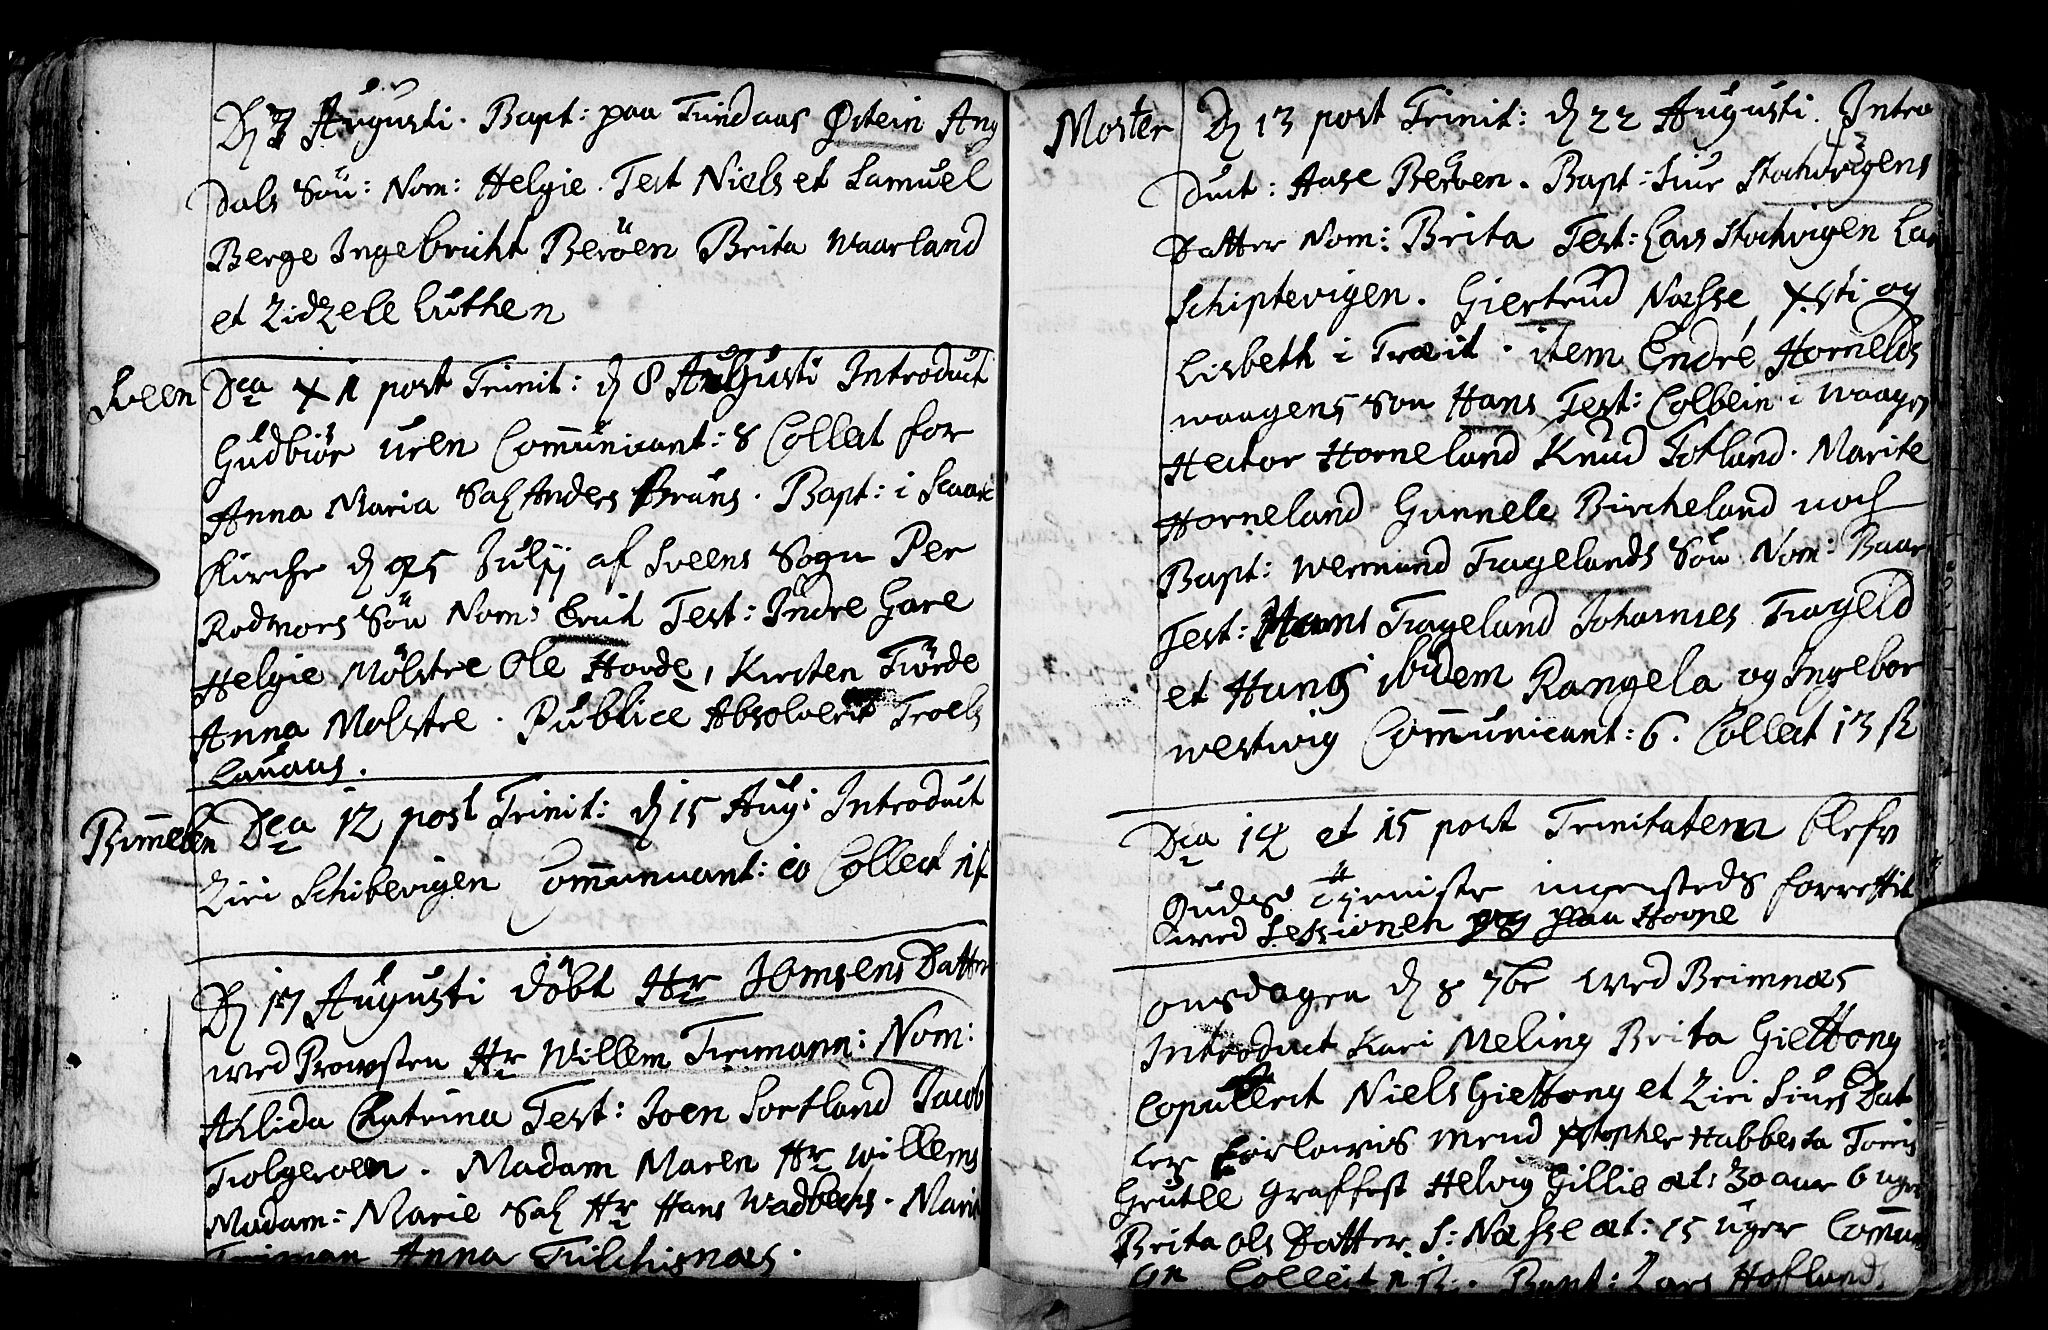 D 7 Augusti. Bapt: paa Findaas Østein Ang
dals Søn: Nom: Helgie. Test Niels et Samuel
Berge Ingebricht Beröen Brita Waarland
et Zidzele Luthen
Sveen
Dca XI post Trinit: d 8 Augusti Introduct
Gudbiör Uren Communicant: 8 Collect for
Anna Maria Sal Anders Bruns. Bapt: i
Kirche d 25 Julij af Sveens Sogn Per
Rodmors Sön Nom: Erich Test: Indre Gare
Helgie Mölstre Ole Hovde, Kirsten Tiörde
Anna Molstre. Publice Absolverit Troels
Lauaas.
Bømmelen
Dca 12 post Trinit: d 15 Aug: Introduct
Ziri Schibevigen Communicant: 10 Collect
D 17 Augusti döbt Hr Jemsens Datter
wed Prowsten Hr Willem Frimann: Nom:
Ahlida Catrina Test: Joen Sortland Jacob
Folgeroen. Madam Maren Hr Willems
Madam: Marie Sal Hr Hans Wadbechs. Marie
Friman Anna Filchisnæs.
Moster
D 13 post Trinit: d 22 Augusti. Intro
duct: Aase Beröen. Bapt: Siur Stochevigens
Datter Nom: Brita Test: Lars Stochvigen Lar
Schiptevigen. Giertrud Næsse, Xsti og
Lisbeth i Træit. item Endre Hornelds
waagens Søn Hans Test: Colbein i Waagen
Hector Horneland Knud Totland. Marite
Horneland Gunnele Bircheland noch
Bapt: Wermund Tragelands Sön Nom: Baar
Test: Hans Trageland Johannes Trageld
et Hans ibidem Rangela og Ingebor
westwig Communicant: 6. Collect 13 ß
Dca 14 et 15 post Trinitatem blefv
Guds Tjeniste ingensteds forrettit
wed Sessionen paa Hovne
onsdagen d 8 7br wed Brimnæs
Introduct Kari Meling Brita Giettøng
Copulerit Niels Giettøng et Ziri Siurs Dat
ter Forlowis mend Xstopher Habbesta Torris
Grutle Graffest Helvig Gillie æt: 30 aar 6 uger
Brita Ols Datter S: Næsse æt: 15 uger Commun
Collect Bapt: Lars Hofland.